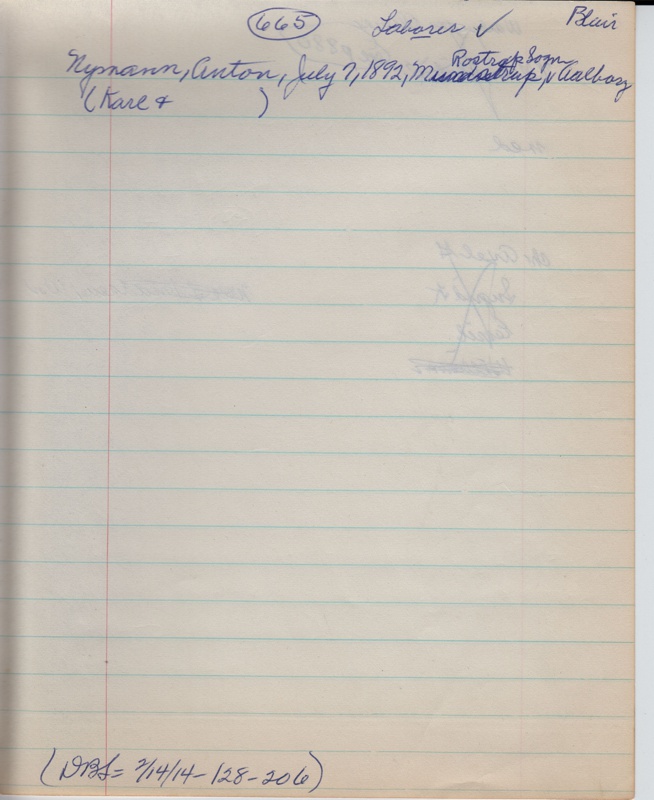 665 Laborer ✓ Blair
Rostrup Sogn
Nymann, Anton, July 7, 1892, Mundstrup, v Aalborg
(Karl & )
(DBS = 2/14/14 - 128 - 206)